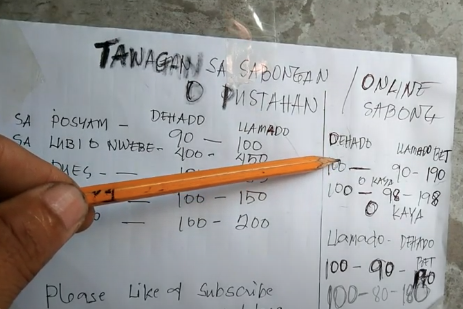 TAWAGAN SA SABONGAN
O PUSTAHAN
DEHADO LLAMADO
SA POSYAM - 90 - 100
SA LUBI O NWEBE - 400 - 450
- 100 - 150
- 100 - 200
Please Like & Subscribe
ONLINE
SABONG
DEHADO LLAMADO BET
100 - 90 - 190
O KAYA
100 - 98 - 198
O KAYA
Llamado - DEHADO
BET
100 - 90 -
100 - 80 - 180